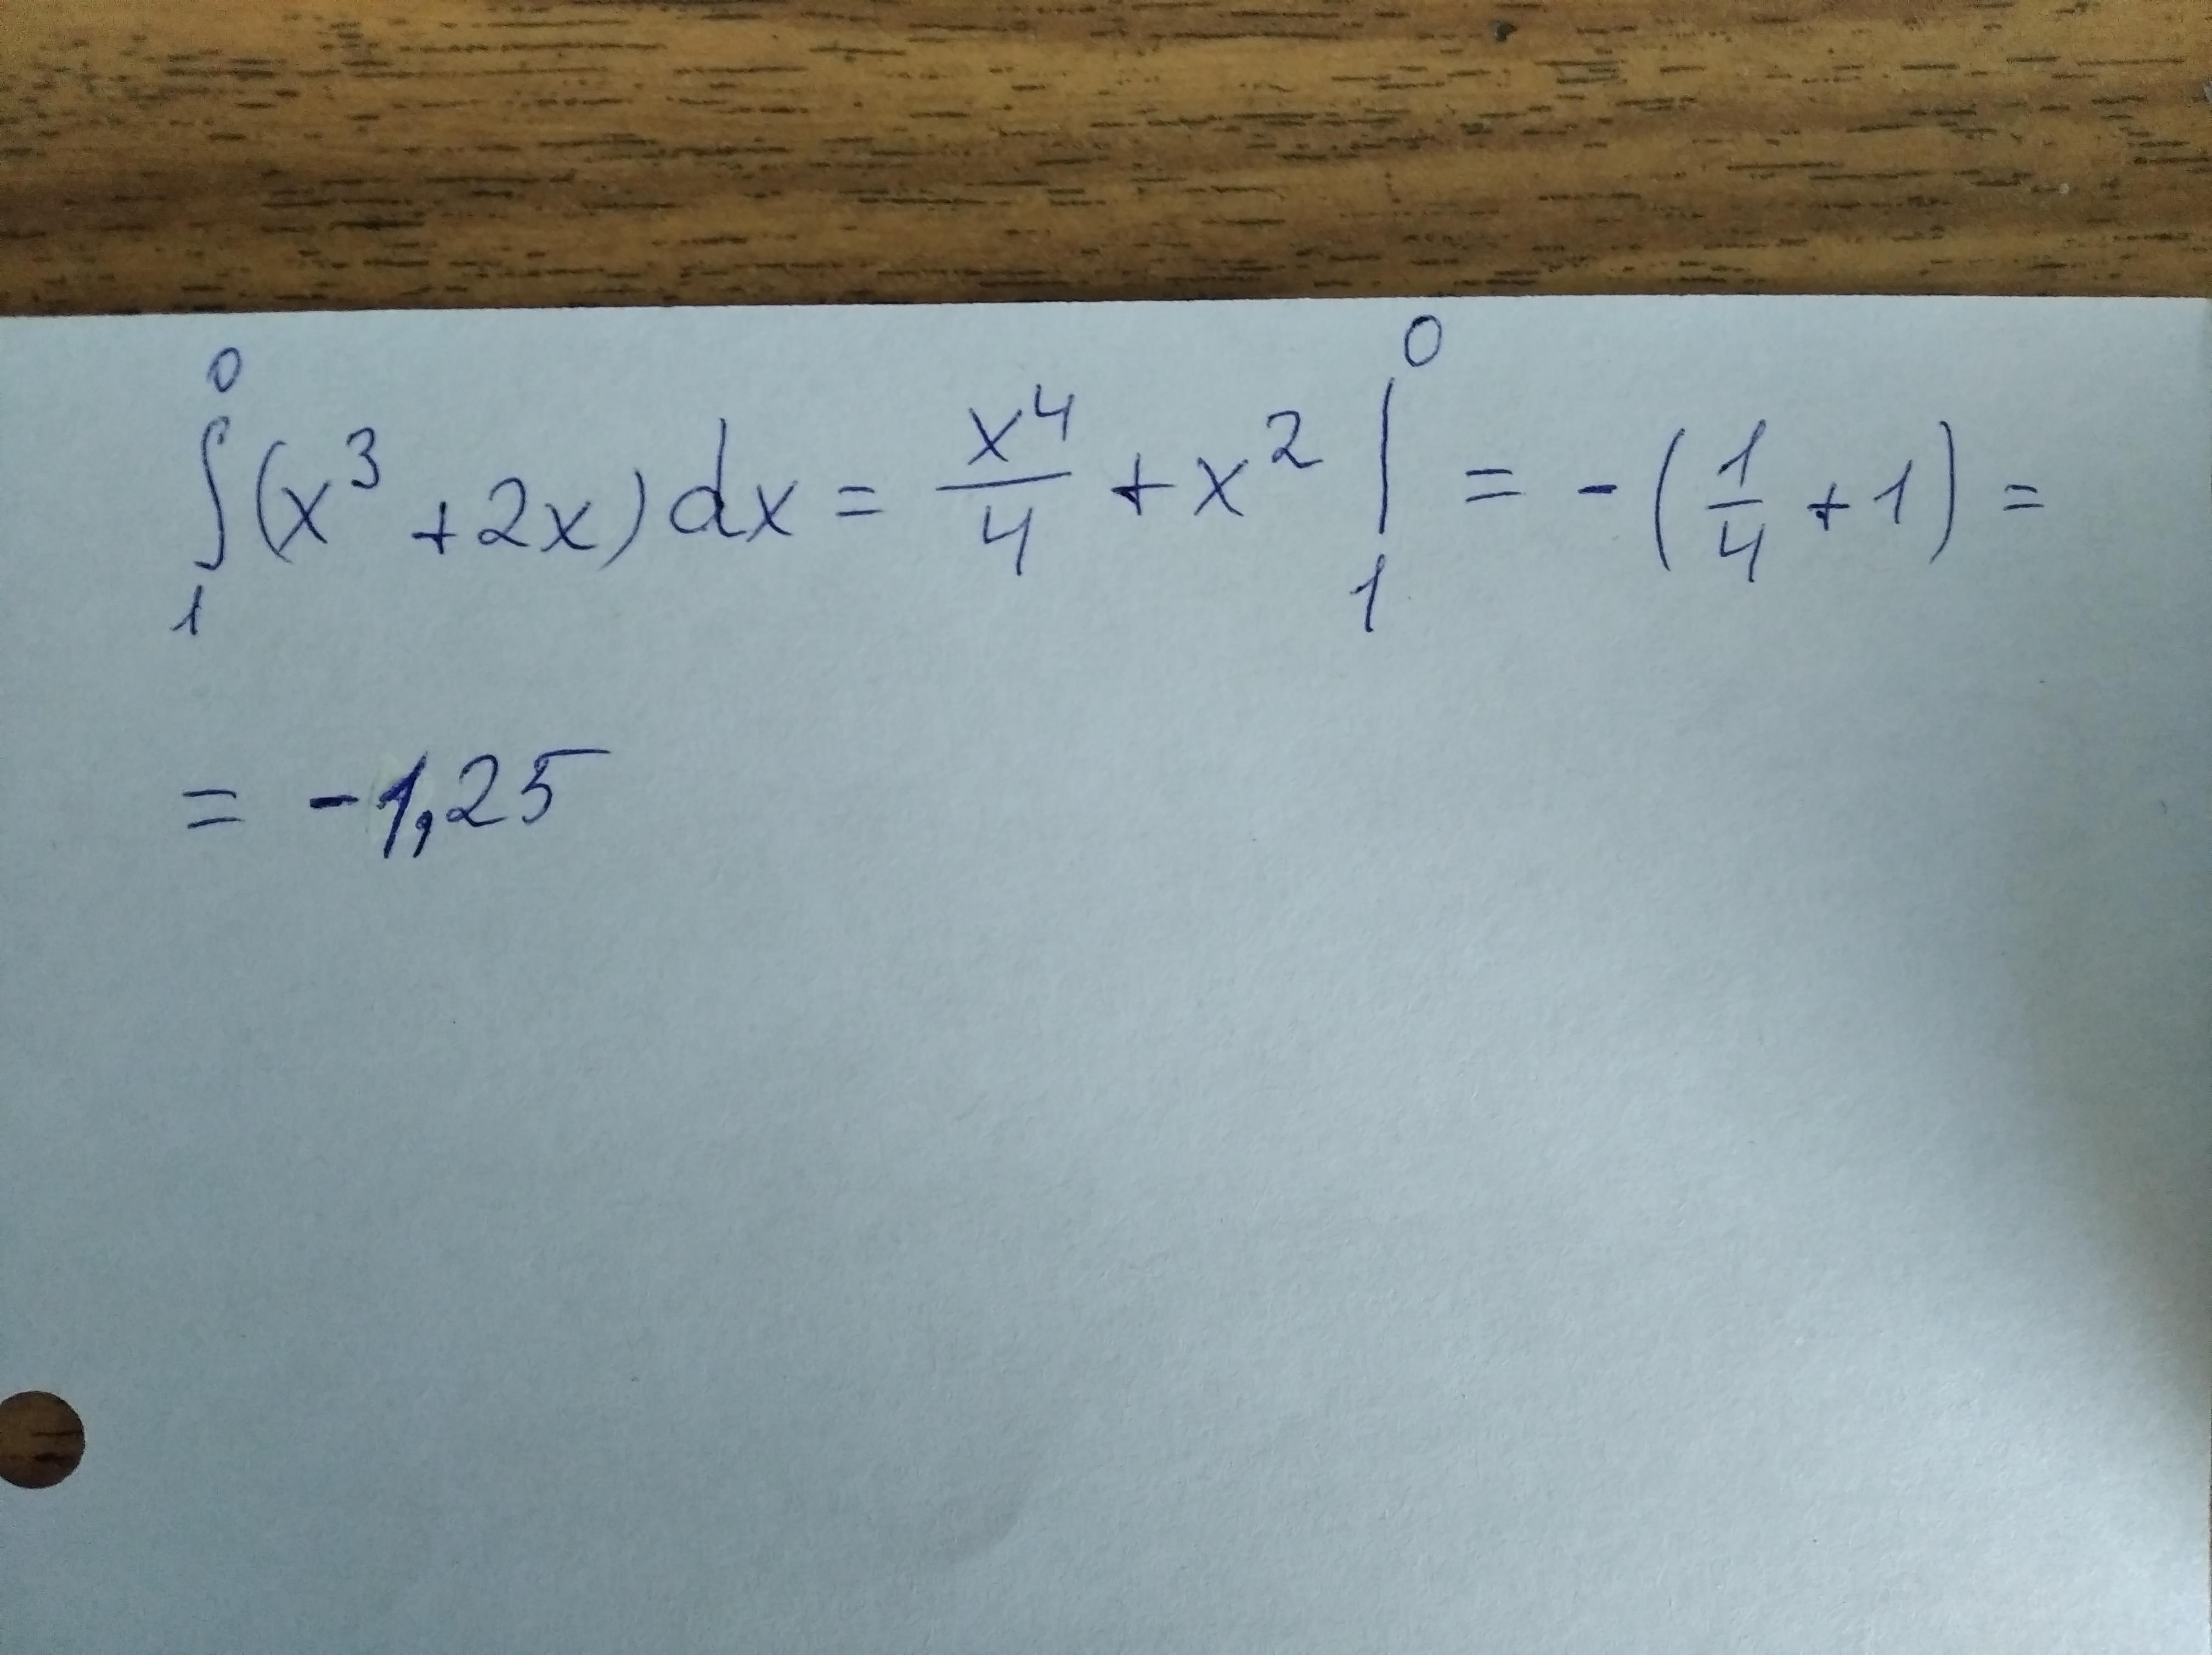 ∫₁⁰(x³+2x)dx = x⁴/4 + x² |₁⁰ = -(1/4+1) =
= -1,25